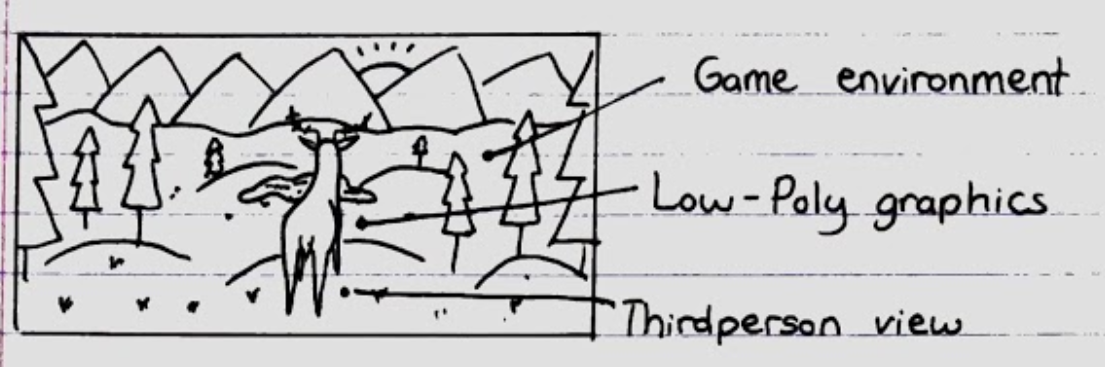 Game environment
Low-Poly graphics
Thirdperson view